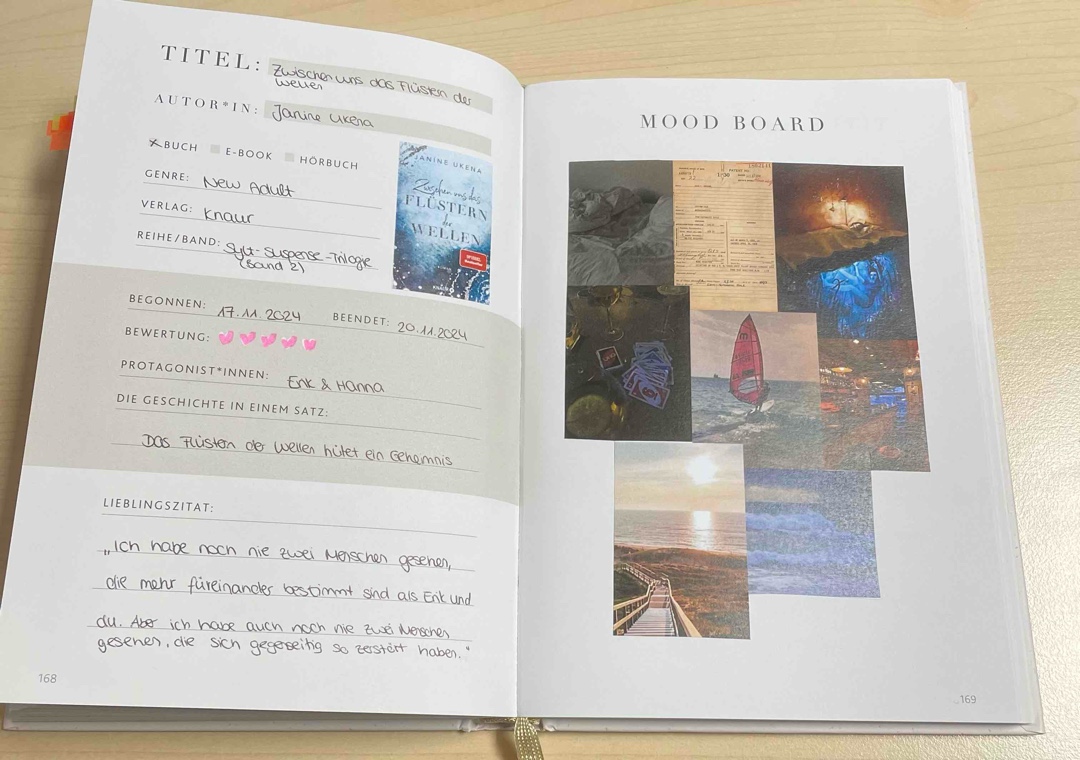 TITEL: Zwischen uns das Flüstern der
Wellen
AUTOR*IN: Janine Ukena
BUCH E-BOOK HÖRBUCH
GENRE: New Adult
VERLAG: Knaur
REIHE/BAND: Sylt-Suspense-Trilogie
(Band 2)
JANINE UKENA
Zwischen uns das
FLÜSTERN
der
WELLEN
SPIEGEL
Bestseller
KNAUR
BEGONNEN: 17.11.2024 BEENDET: 20.11.2024
BEWERTUNG:
PROTAGONIST*INNEN: Erik & Hanna
DIE GESCHICHTE IN EINEM SATZ:
Das Flüstern der Wellen hütet ein Geheimnis
LIEBLINGSZITAT:
„Ich habe noch nie zwei Menschen gesehen,
die mehr füreinander bestimmt sind als Erik und
du. Aber ich habe auch noch nie zwei Menschen
gesehen, die sich gegenseitig so zerstört haben."
168
MOOD BOARD
169